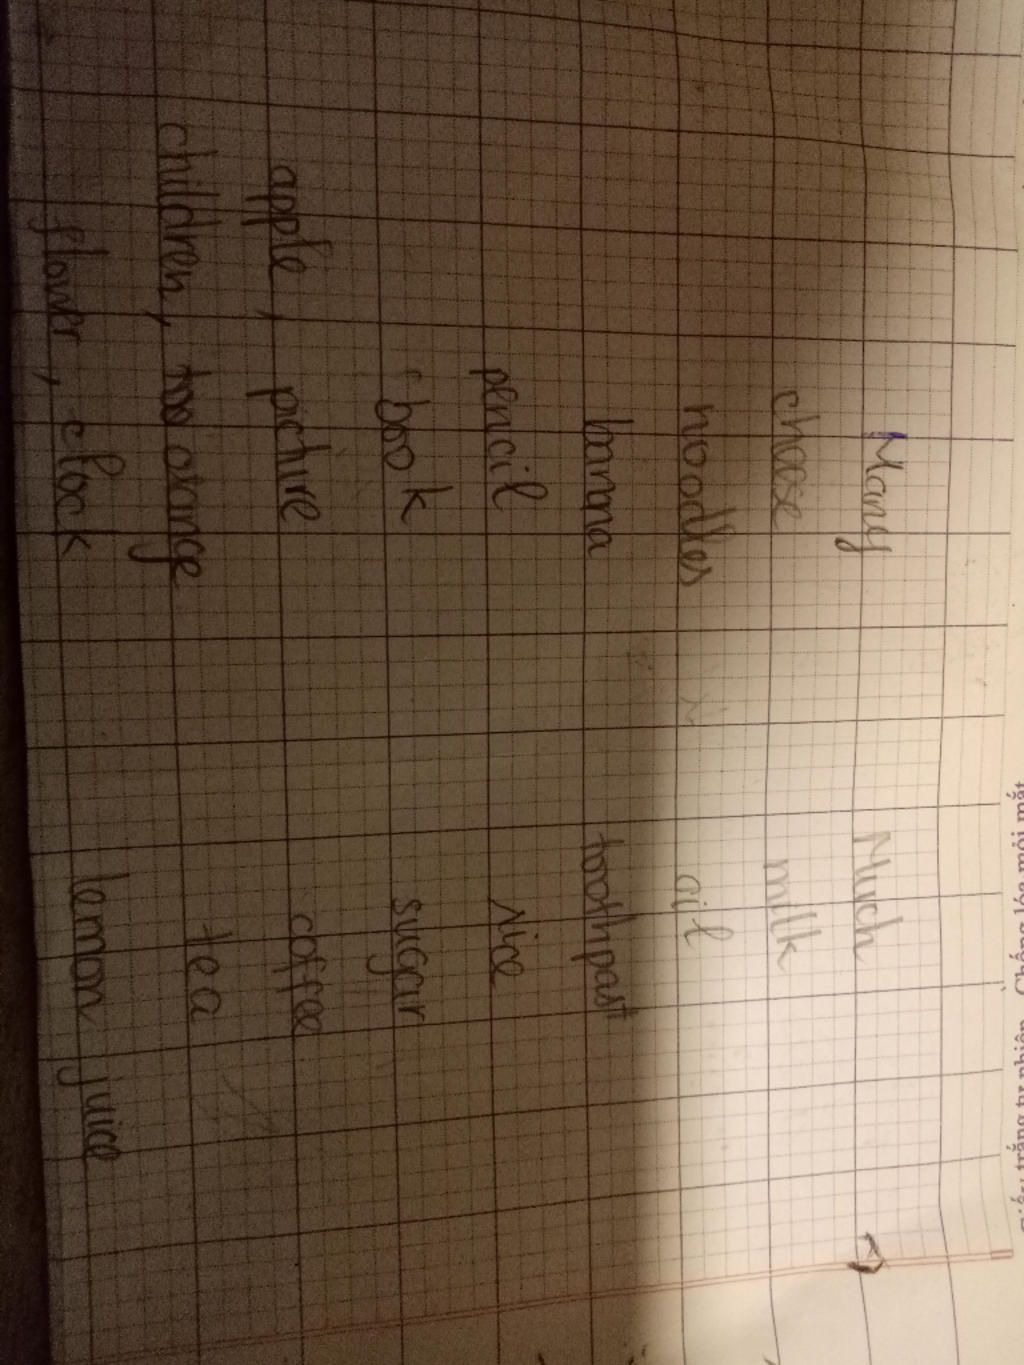 Many Much
cheese milk
noodles oil
banna toothpast
pencil rice
book sugar
apple, picture coffee
children, orange tea
flower, clock lemon juice
Chống lóa mỏi mắt
trắng tự nhiên